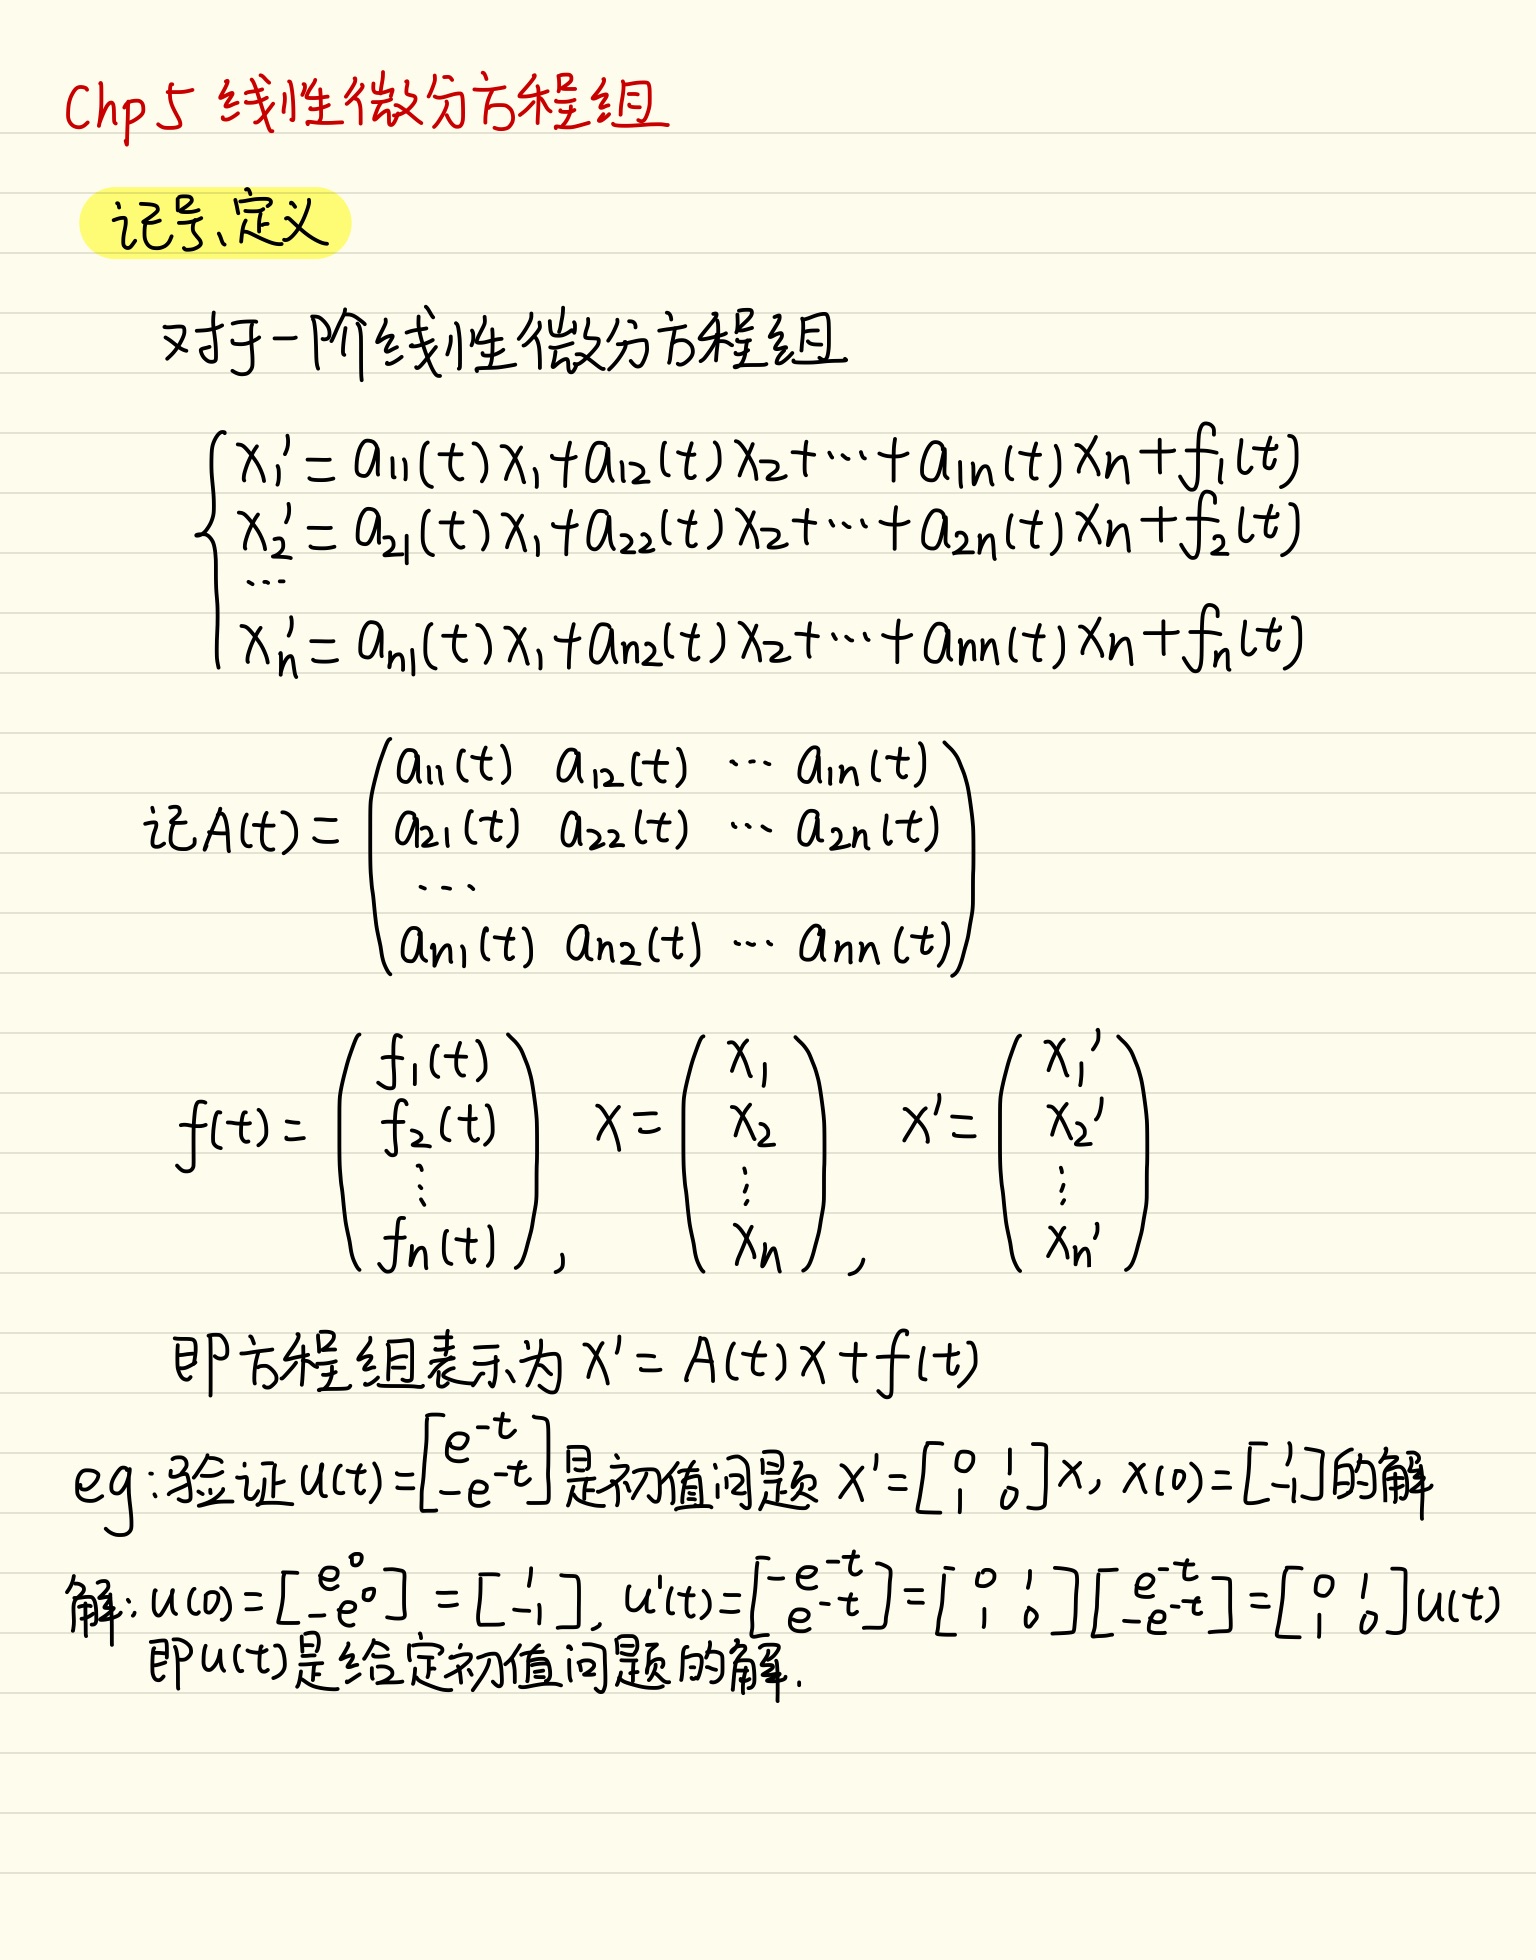 Chp 5 线性微分方程组
记号、定义
对于一阶线性微分方程组
x₁' = a₁₁(t)x₁+a₁₂(t)x₂+⋯+a₁ₙ(t)xₙ+f₁(t)
x₂' = a₂₁(t)x₁+a₂₂(t)x₂+⋯+a₂ₙ(t)xₙ+f₂(t)
⋯
xₙ' = aₙ₁(t)x₁+aₙ₂(t)x₂+⋯+aₙₙ(t)xₙ+fₙ(t)
记A(t) = (a₁₁(t) a₁₂(t) ⋯ a₁ₙ(t)
a₂₁(t) a₂₂(t) ⋯ a₂ₙ(t)
⋯
aₙ₁(t) aₙ₂(t) ⋯ aₙₙ(t))
f(t) = (f₁(t) f₂(t) ⋮ fₙ(t)), x = (x₁ x₂ ⋮ xₙ), x' = (x₁' x₂' ⋮ xₙ')
即方程组表示为 x' = A(t)x+f(t)
eg:验证u(t)=[e^-t; -e^-t]是初值问题 x'=[0 1; 1 0]x, x(0)=[1; -1]的解
解: u(0)=[e^0; -e^0] = [1; -1], u'(t)=[-e^-t; e^-t]=[0 1; 1 0][e^-t; -e^-t]=[0 1; 1 0]u(t)
即u(t)是给定初值问题的解.